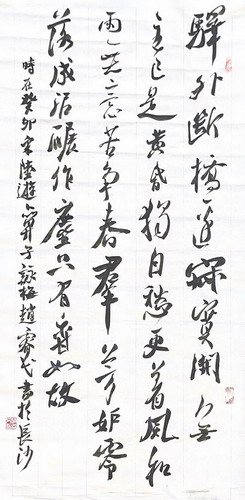 驛外斷橋邊寂寞開無
主已是黃昏獨自愁更著風和
雨無意苦爭春羣芳妒零
落成泥碾作塵只有香如故
時在癸卯冬陸遊卜算子詠梅趙書於長沙